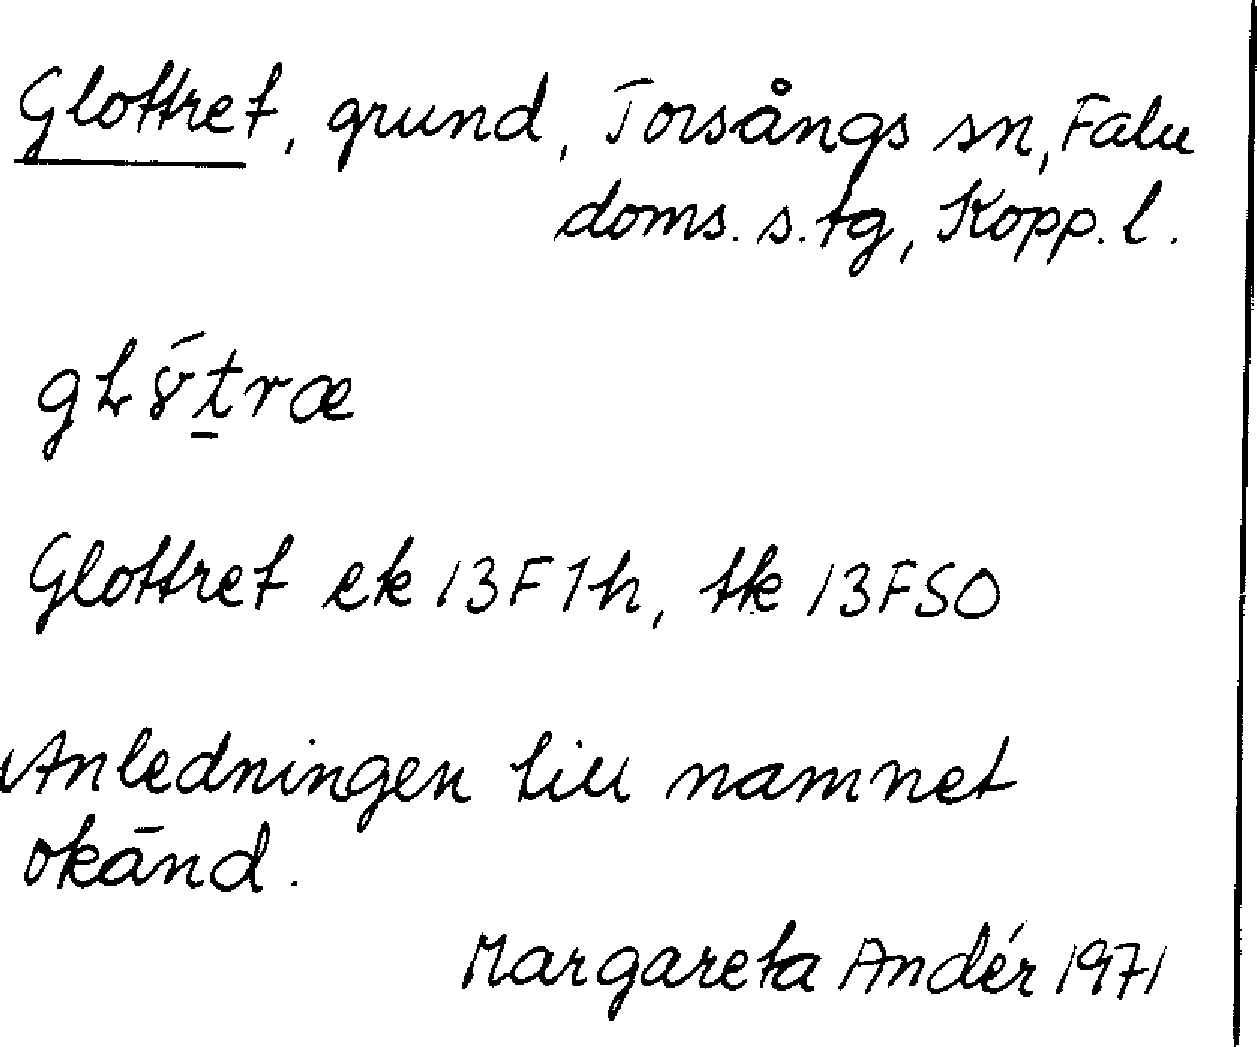 Glottret, grund, Torsångs sn, Falu
doms. s. tg, Kopp. l.
Glottret ek 13F1h, tk 13FSO
Anledningen till namnet
okänd.
Margareta Andér 1971